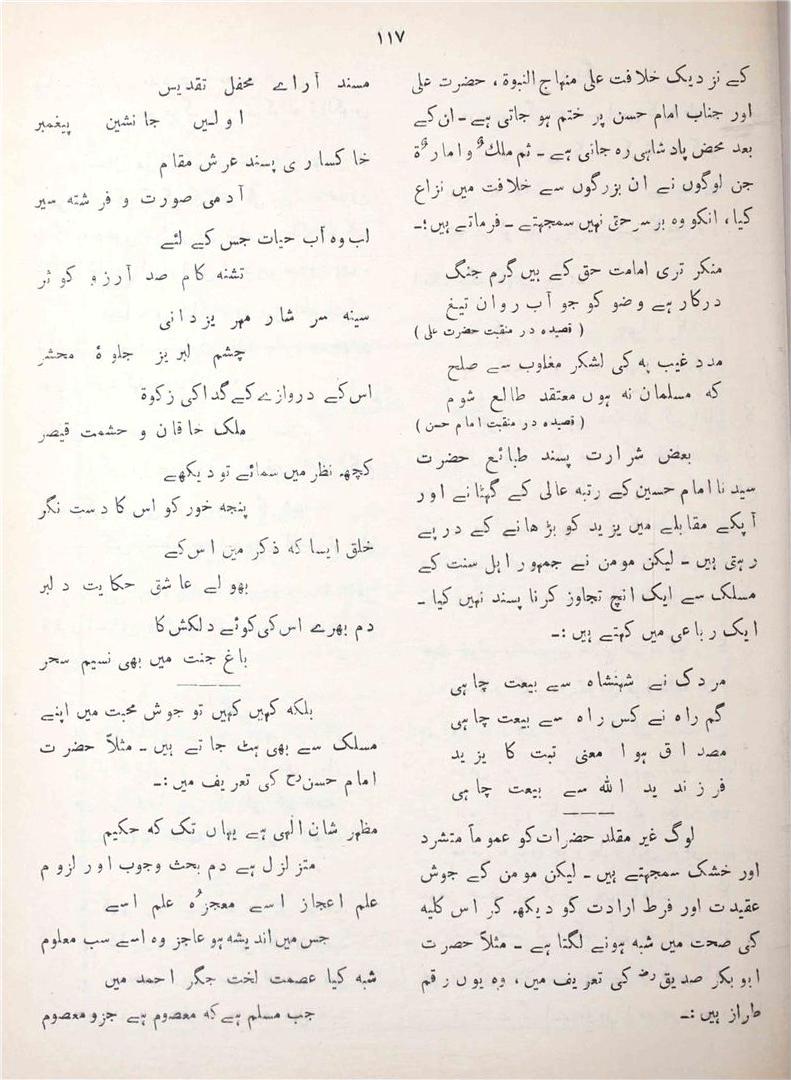 ۱۱۷
کے نزدیک خلافت علی منہاج النبوۃ، حضرت علی
اور جناب امام حسن پر ختم ہو جاتی ہے ـ ان کے
بعد محض پادشاہی رہ جاتی ہے ـ ثم ملکٌ و امارۃٌ
جن لوگوں نے ان بزرگوں سے خلافت میں نزاع
کیا، انکو وہ بر سر حق نہیں سمجھتے ـ فرماتے ہیں:ـ
منکر تری امامت حق کے ہیں گرم جنگ
درکار ہے وضو کو جو آب روان تیغ
(قصیدہ در منقبت حضرت علی)
مدد غیب یہ کی لشکر مغلوب سے صلح
کہ مسلمان نہ ہوں معتقد طالع شوم
(قصیدہ در منقبت امام حسن)
بعض شرارت پسند طبائع حضرت
سیدنا امام حسین کے رتبہ عالی کے گھٹانے اور
آپکے مقابلے میں یزید کو بڑھانے کے درپے
رہتی ہیں ـ لیکن مومن نے جمہور اہل سنت کے
مسلک سے ایک انچ تجاوز کرنا پسند نہیں کیا ـ
ایک رباعی میں کہتے ہیں :ـ
مردک نے شہنشاہ سے بیعت چاہی
گم راہ نے کس راہ سے بیعت چاہی
مصداق ہوا معنی تبت کا یزید
فرزند ید اللہ سے بیعت چاہی
لوگ غیر مقلد حضرات کو عموماً متشرد
اور خشک سمجھتے ہیں ـ لیکن مومن کے جوش
عقیدت اور فرط ارادت کو دیکھ کر اس کلیہ
کی صحت میں شبہ ہونے لگتا ہے ـ مثلاً حضرت
ابوبکر صدیق رض کی تعریف میں، وہ یوں رقم
طراز ہیں :ـ
مسند آراے محفل تقدیس
اولیں جانشین پیغمبر
خاکساری پسند عرش مقام
آدمی صورت و فرشتہ سیر
لب وہ آب حیات جس کے لئے
تشنہ کام صد آرزو کوثر
سینہ سرشار مہر یزدانی
چشم لبریز جلوۂ محشر
اس کے دروازے کے گدا کی زکوۃ
ملک خاقان و حشمت قیصر
کچھ نظر میں سمائے تو دیکھے
پنجہ خور کو اس کا دست نگر
خلق ایسا کہ ذکر میں اس کے
بھولے عاشق حکایت دلبر
دم بھرے اس کی کوئے دلکش کا
باغ جنت میں بھی نسیم سحر
بلکہ کہیں کہیں تو جوش محبت میں اپنے
مسلک سے بھی ہٹ جاتے ہیں ـ مثلاً حضرت
امام حسن رح کی تعریف میں :ـ
مظہر شان الٰہی ہے یہاں تک کہ حکیم
متزلزل ہے دم بحث وجوب اور لزوم
علم اعجاز اسے معجزۂ علم اسے
جس میں اندیشہ ہو عاجز وہ اسے سب معلوم
شبہ کیا عصمت لخت جگر احمد میں
جب مسلم ہے کہ معصوم ہے جزو معصوم